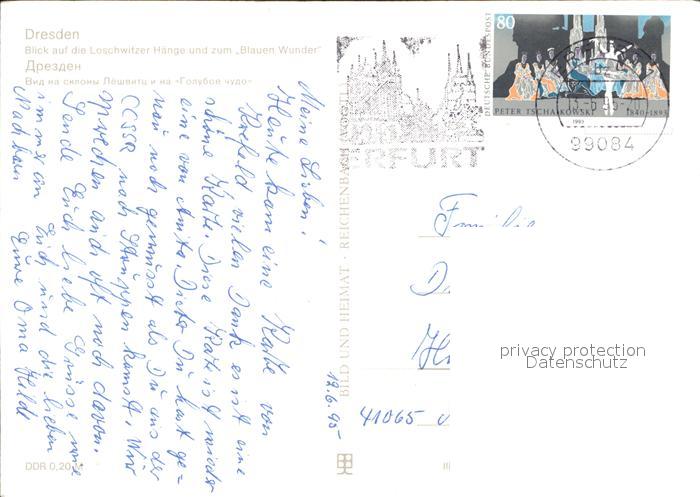 Dresden
Blick auf die Loschwitzer Hänge und zum „Blauen Wunder"
Дрезден
Вид на склоны Лёшвитц и на «Голубое чудо»
Meine Lieben!
Heute kam eine Karte von
Krefeld vielen Dank es ist eine
schöne Karte. Diese Karte ist wieder
eine von Anita. Dieter Du hast ge-
nau noch gewusst als Du aus der
CCSR nach Struppen kamst. Wir
sprechen auch oft noch davon.
Sende Euch liebe Grüsse wie
immer an Euch und die lieben
Nachbarn Eure Oma Hilde
DDR 0,20 M
BILD UND HEIMAT · REICHENBACH (VOGTL)
12.6.95
ERFURT
80
DEUTSCHE BUNDESPOST
PETER TSCHAIKOWSKI 1840-1893
1993
99084
Familie
D
H
41065
privacy protection
Datenschutz